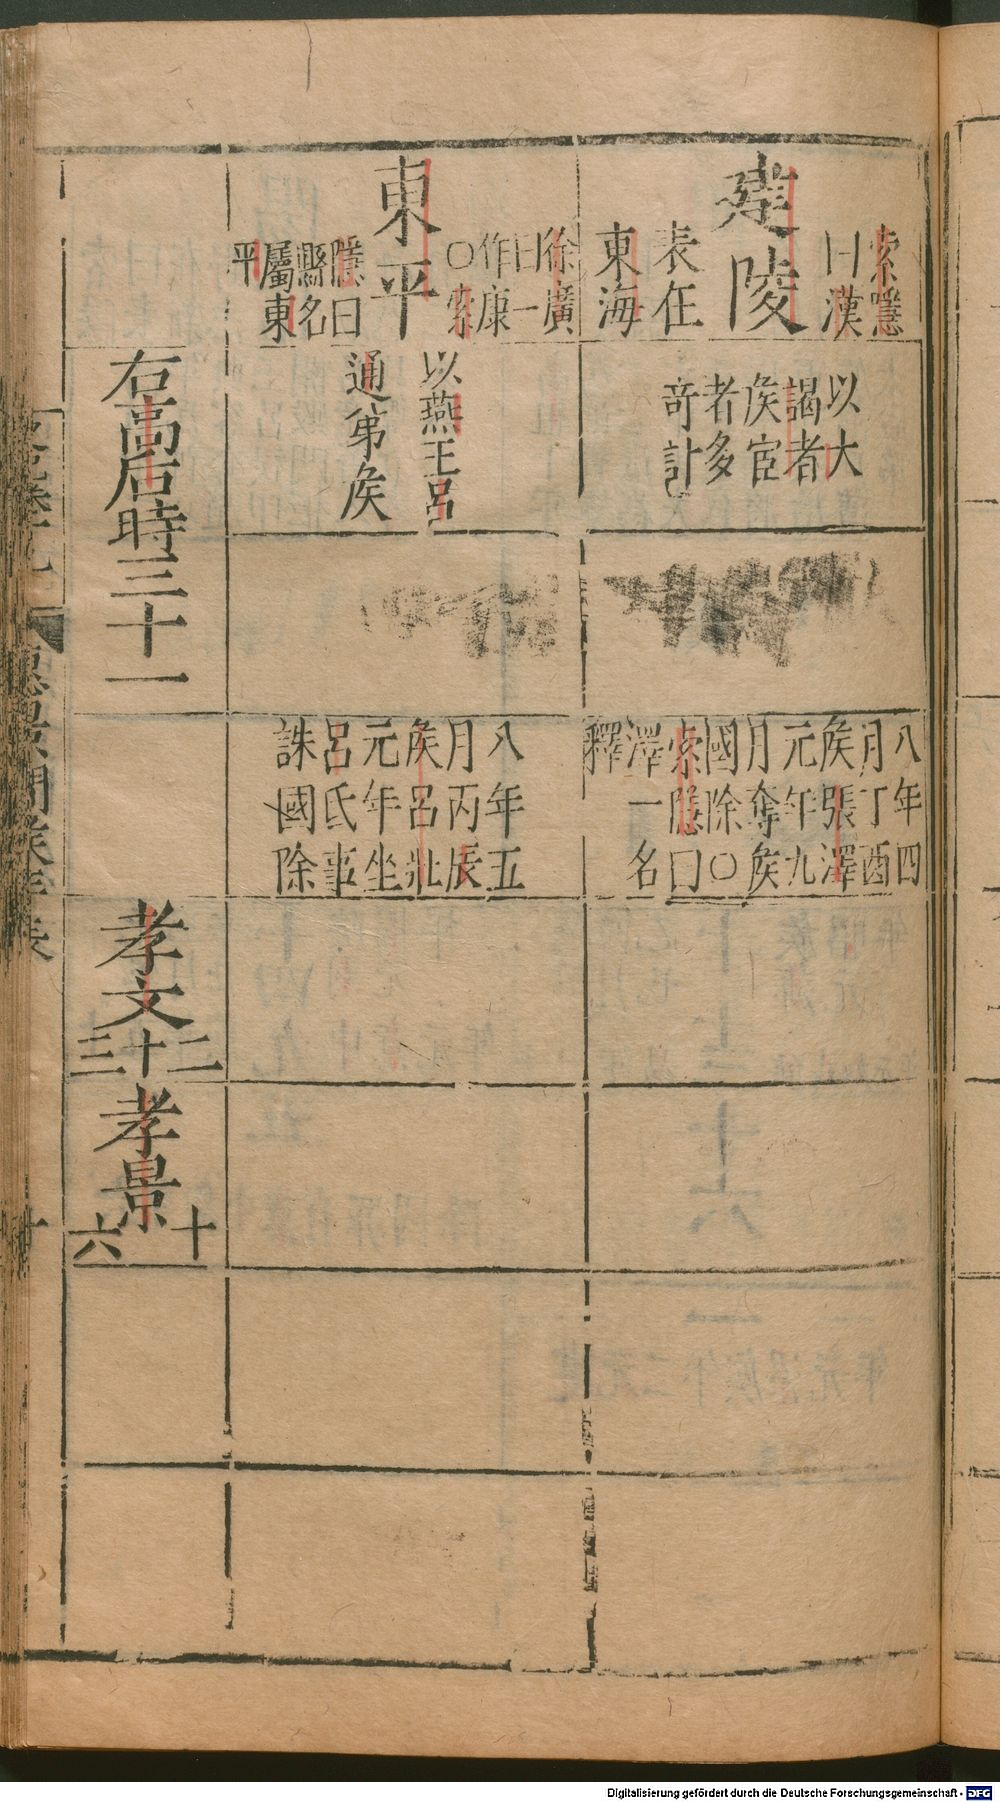 索隱
曰漢
建陵
表在
東海
以大
謁者
侯宦
者多
奇計
八年四
月丁酉
侯張澤
元年九
月奪侯
國除○
索隱曰
澤一名
釋
徐廣
曰一
作康
○索
東平
隱曰
縣名
屬東
平
以燕王呂
通弟侯
八年五
月丙辰
侯呂壯
元年坐
呂氏事
誅國除
右高后時三十一
孝文二十三
孝景十六
Digitalisierung gefördert durch die Deutsche Forschungsgemeinschaft - DFG